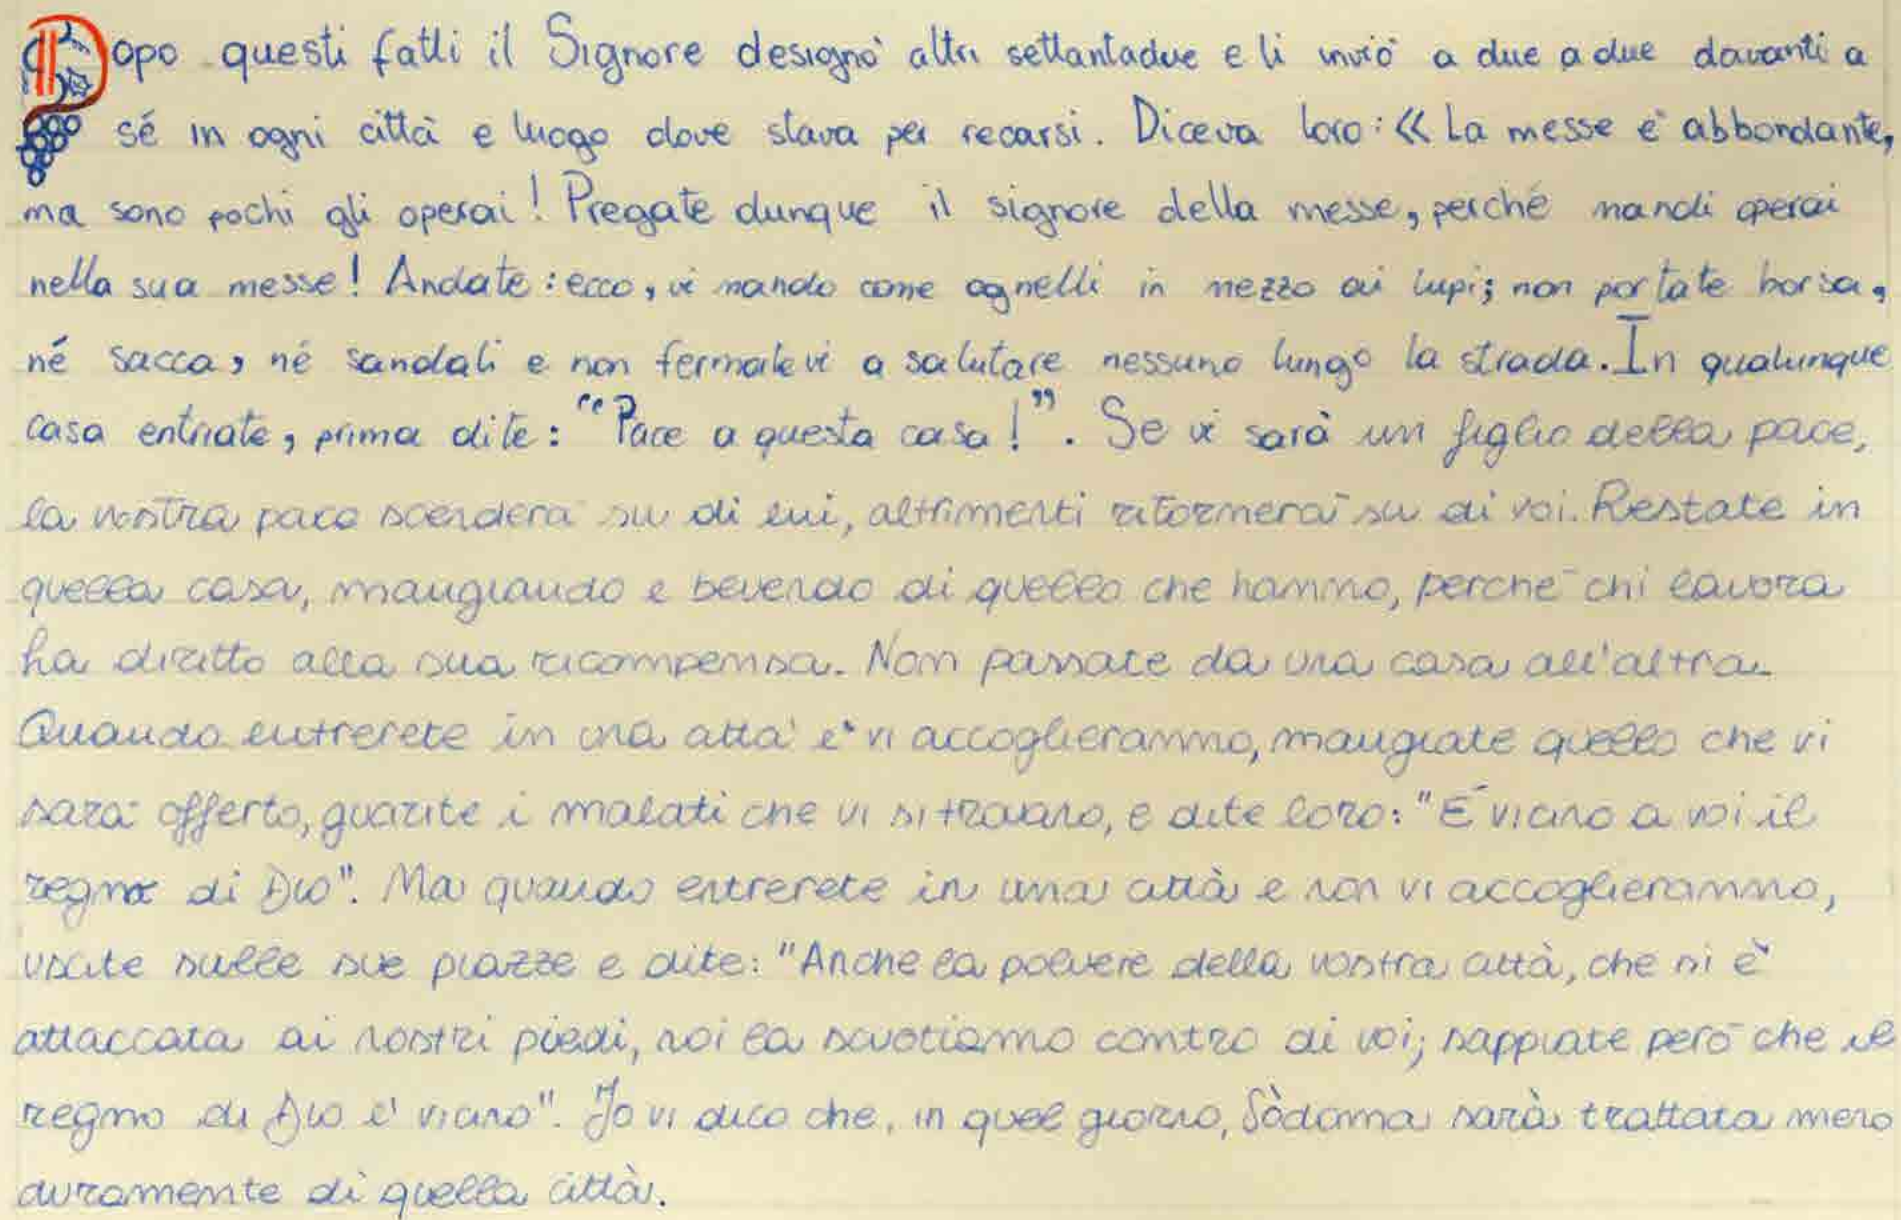 Dopo questi fatti il Signore designò altri settantadue e li inviò a due a due davanti a
sé in ogni città e luogo dove stava per recarsi. Diceva loro: « La messe è abbondante,
ma sono pochi gli operai! Pregate dunque il signore della messe, perché mandi operai
nella sua messe! Andate: ecco, vi mando come agnelli in mezzo ai lupi; non portate borsa,
né sacca, né sandali e non fermatevi a salutare nessuno lungo la strada. In qualunque
casa entriate, prima dite: "Pace a questa casa!". Se vi sarà un figlio della pace,
la vostra pace scenderà su di lui, altrimenti ritornerà su di voi. Restate in
quella casa, mangiando e bevendo di quello che hanno, perché chi lavora
ha diritto alla sua ricompensa. Non passate da una casa all'altra.
Quando entrerete in una città e vi accoglieranno, mangiate quello che vi
sarà offerto, guarite i malati che vi si trovano, e dite loro: "È vicino a voi il
regno di Dio". Ma quando entrerete in una città e non vi accoglieranno,
uscite sulle sue piazze e dite: "Anche la polvere della vostra città, che si è
attaccata ai nostri piedi, noi la scuotiamo contro di voi; sappiate però che il
regno di Dio è vicino". Io vi dico che, in quel giorno, Sòdoma sarà trattata meno
duramente di quella città.